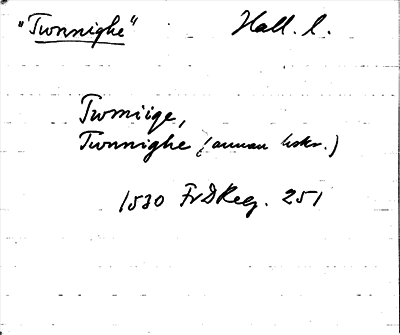 "Twnnighe" Hall. l.
Twmiige,
Twnnighe (annan hskr.)
1530 FrDReg. 251